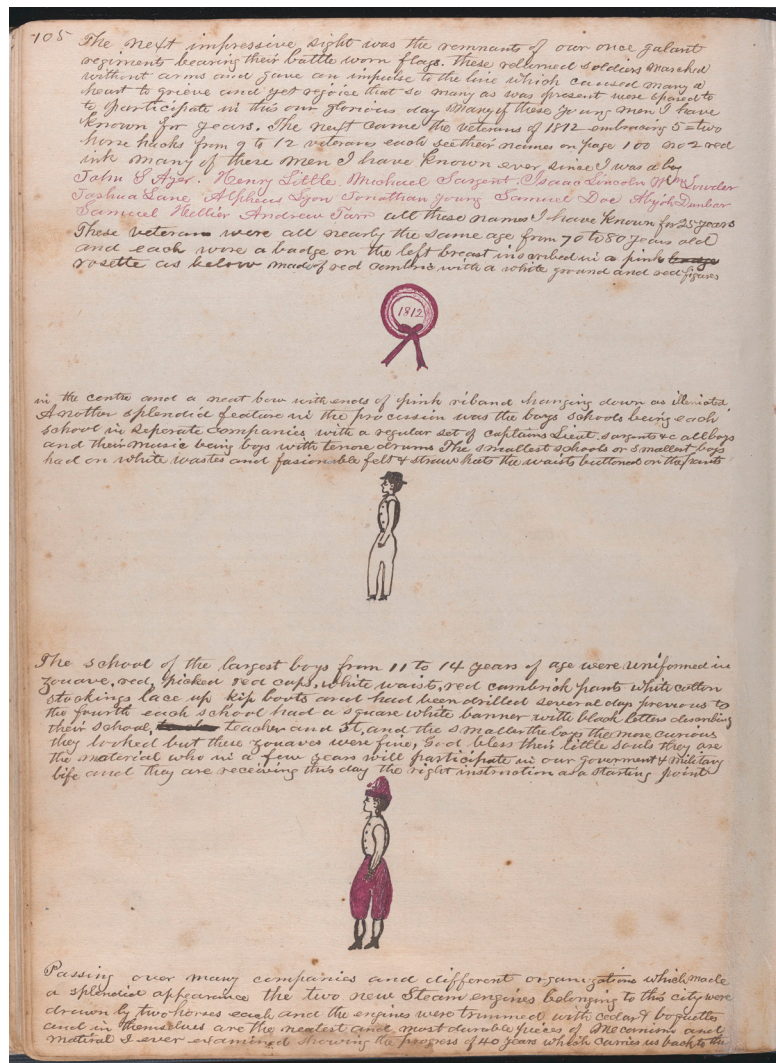 105 The next impressive sight was the remnants of our once galant
regiments bearing their battle worn flags. these returned soldiers marched
without arms and gave an impulse to the line which caused many a
heart to grieve and yet rejoice that so many as was present were spared to
to participate in this our glorious day Many of these young men I have
known for years. The next came the veterans of 1812 embracing 5 = two
horse hacks from 9 to 12 veterans each see their names on page 100 no 2 red
ink many of these men I have known ever since I was a boy
John S Ayer. Henry Little. Michael Sargent. Isaac Lincoln Wm Lowder
Joshua Lane Alpheus Lyon Jonathan Young Samuel Doe Abijah Dunbar
Samuel Hellier Andrew Tarr all these names I have known for 25 years
These veterans were all nearly the same age from 70 to 80 years old
and each wore a badge on the left breast inscribed in a pink badge
rosette as below made of red cambric with a white ground and red figures
1812
in the centre and a neat bow with ends of pink riband hanging down as
Another splendid feature in the procession was the boys schools being each
school in seperate companies with a regular set of captains Lieut. sargents &c all boys
and their music being boys with tenore drums The smallest schools or smallest boys
had on white wastes and fasionable felt & straw hats the waists buttoned on the pants
The school of the largest boys from 11 to 14 years of age were uniformed in
zouave, red, picked red caps, white waists, red cambrick pants white cotton
stockings lace up kip boots and had been drilled several days previous to
the fourth each school had a square white banner with black letters describing
their school, teacher and St, and the smaller the boys the more curious
they looked but these zouaves were fine, God bless their little souls they are
the material who in a few years will participate in our goverment & military
life and they are receiving this day the right instruction as a starting point
Passing over many companies and different organizations which made
a splendid appearance the two new Steam engines belonging to this city were
drawn by two horses each and the engines were trimmed with cedar & boquettes
and in themselves are the neatest and most durable pieces of mecanism and
matiral I ever examined showing the progress of 40 years which carries us back to the